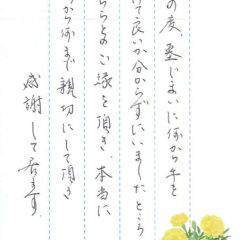 の度、墓じまいに何から手を
けて良いか分からずにいましたところ
ちらとのご縁を頂き、本当に
から何まで親切にして頂き
感謝して居ます。